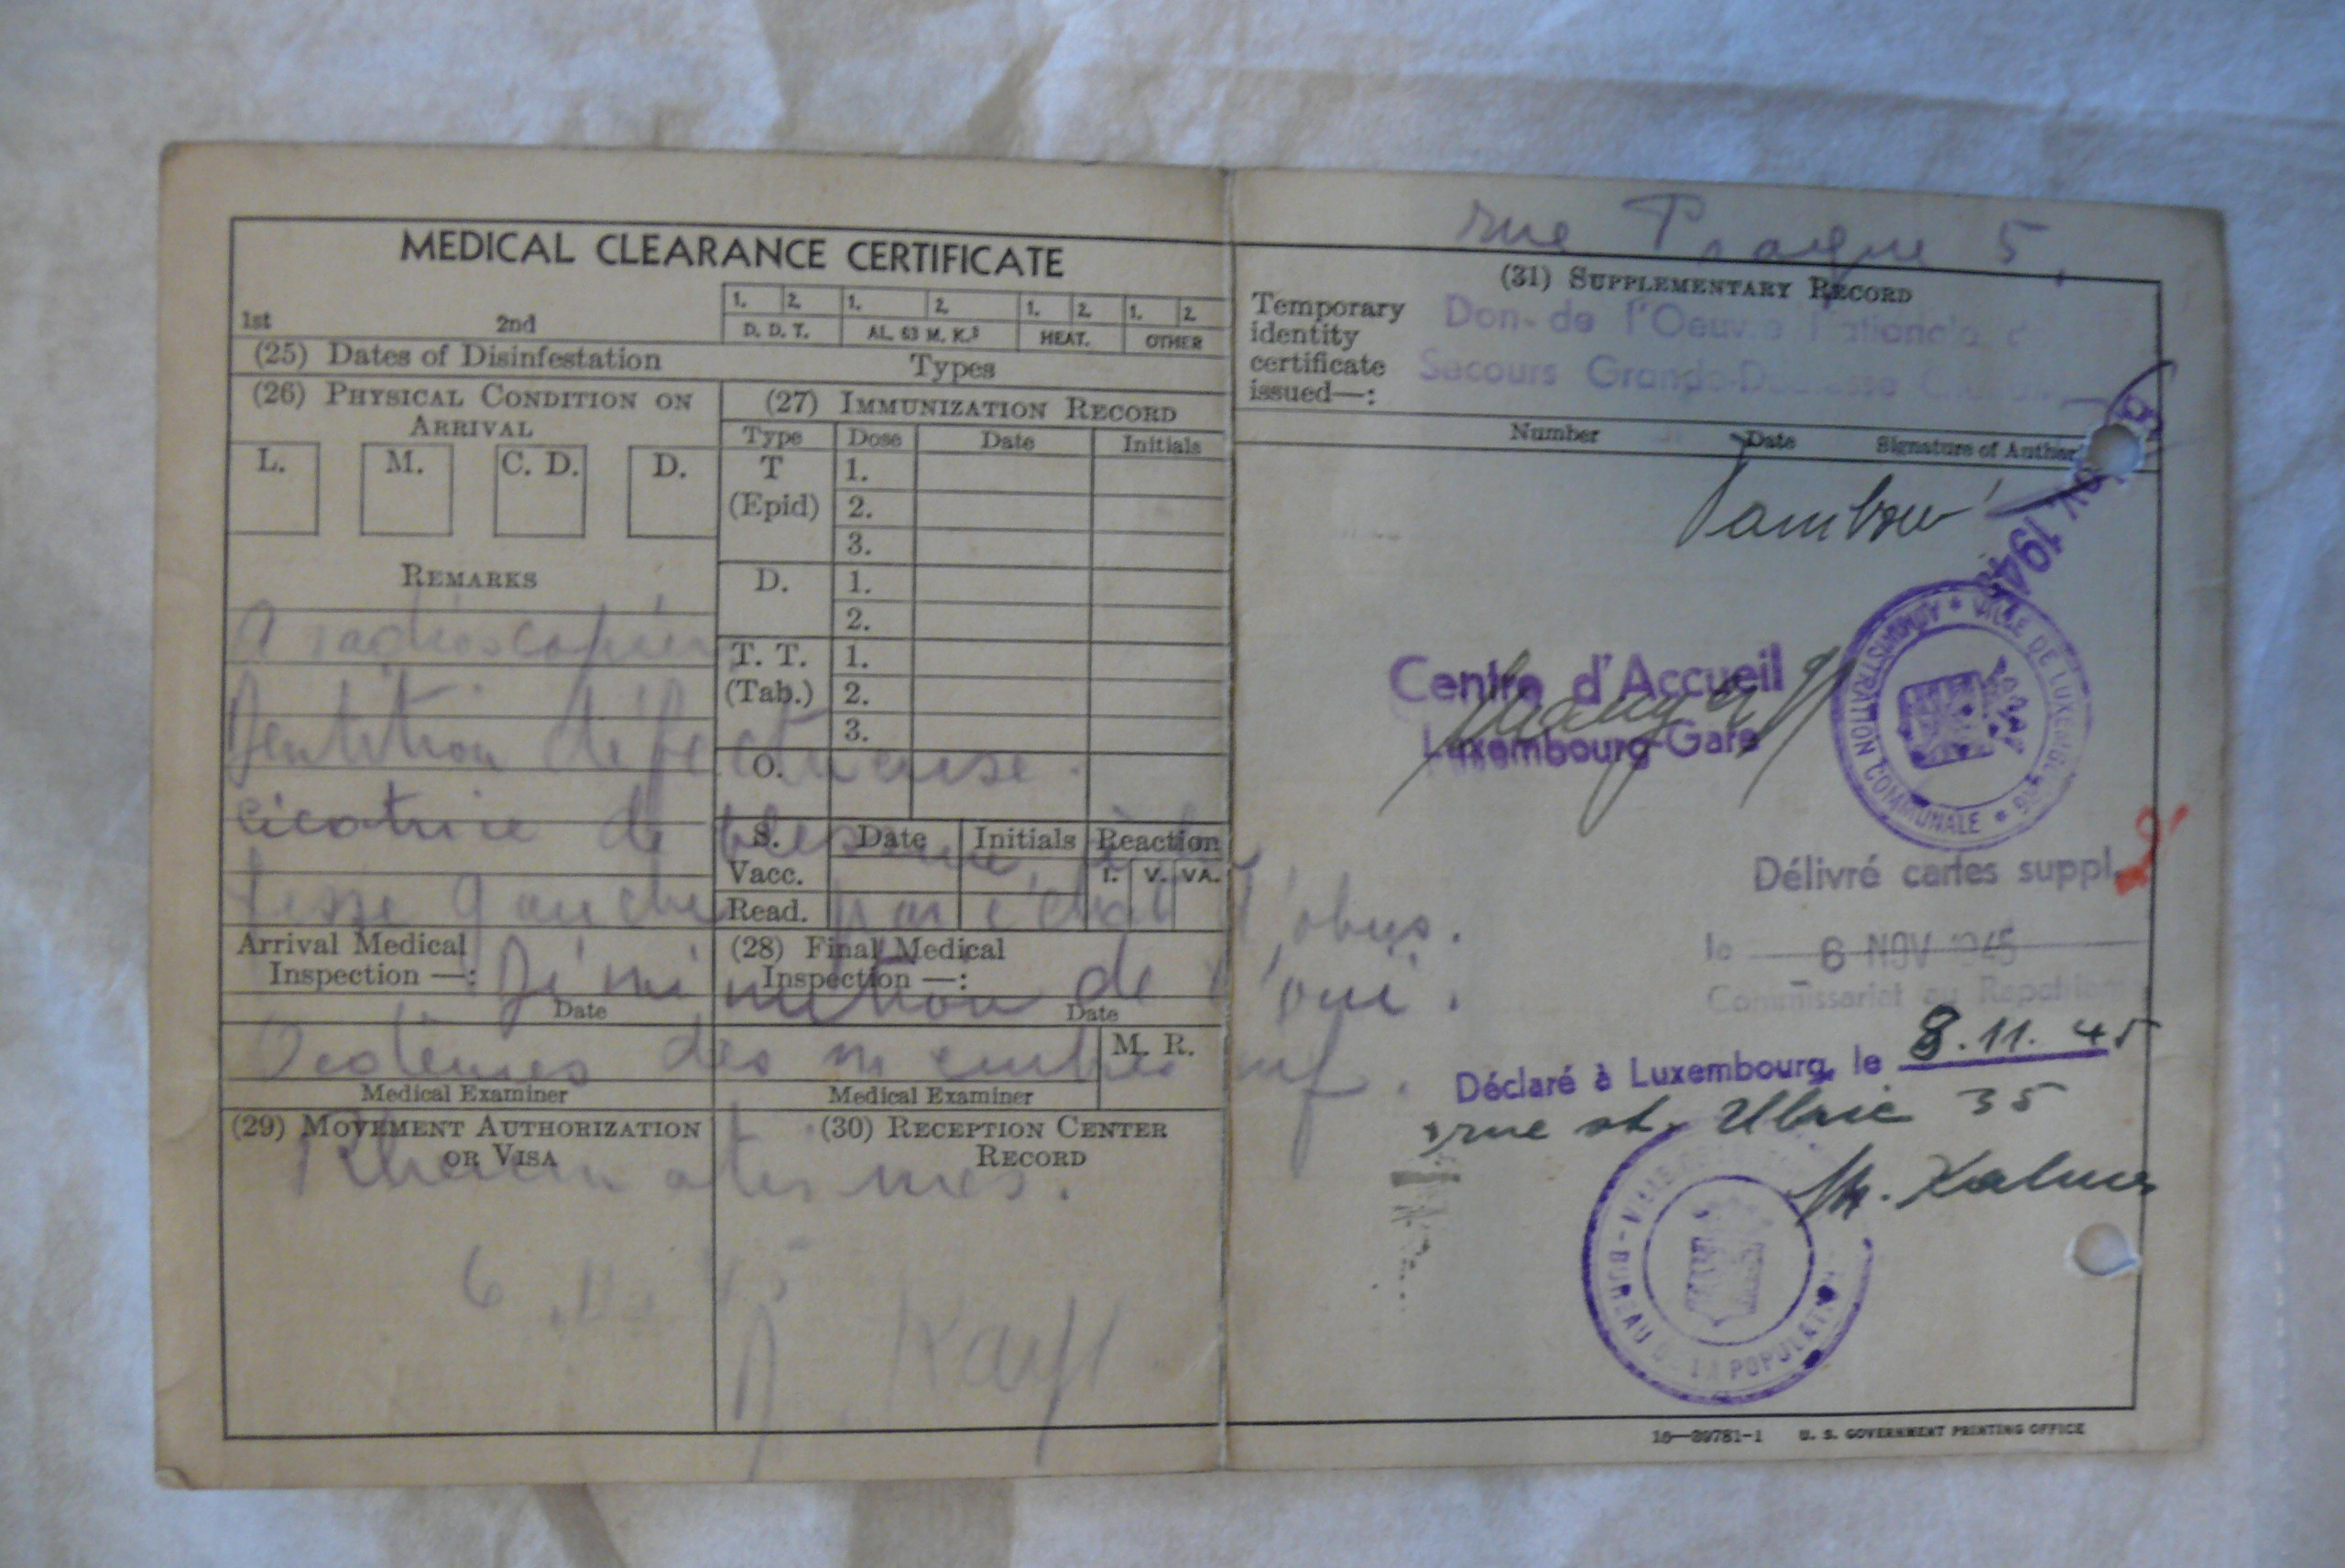 MEDICAL CLEARANCE CERTIFICATE
1st 2nd
1. 2. 1. 2. 1. 2. 1. 2.
D. D. T. AL. 63 M. K.3 HEAT. OTHER
(25) Dates of Disinfestation Types
(26) PHYSICAL CONDITION ON ARRIVAL
L. M. C. D. D.
REMARKS
(27) IMMUNIZATION RECORD
Type Dose Date Initials
T (Epid) 1.
2.
3.
D. 1.
2.
T. T. (Tab.) 1.
2.
3.
O.
S. Date Initials Reaction
Vacc. I. V. VA.
Read.
A radioscopier
Dentition défectueuse.
cicatrice de blessure à la
fesse gauche par éclat d'obus.
Diminution de l'ouï.
Oedèmes des membres inf.
Rhumatismes.
6
Arrival Medical Inspection —:
Date
Medical Examiner
(28) Final Medical Inspection —:
Date
M. R.
Medical Examiner
(29) MOVEMENT AUTHORIZATION OR VISA
(30) RECEPTION CENTER RECORD
rue Prague 5,
(31) SUPPLEMENTARY RECORD
Temporary identity certificate issued—:
Don de l'Oeuvre Nationale
Secours Grande-Duchesse
Number Date Signature of
Tambow
1945
Centre d'Accueil
Luxembourg-Gare
ADMINISTRATION COMMUNALE * VILLE DE LUXEMBOURG *
Délivré cartes suppl.
le 6 NOV 1945
Commissariat au
Déclaré à Luxembourg, le 8.11.45
rue st. Ulric 35
BUREAU DE LA POPULATION
16—39781-1 U. S. GOVERNMENT PRINTING OFFICE